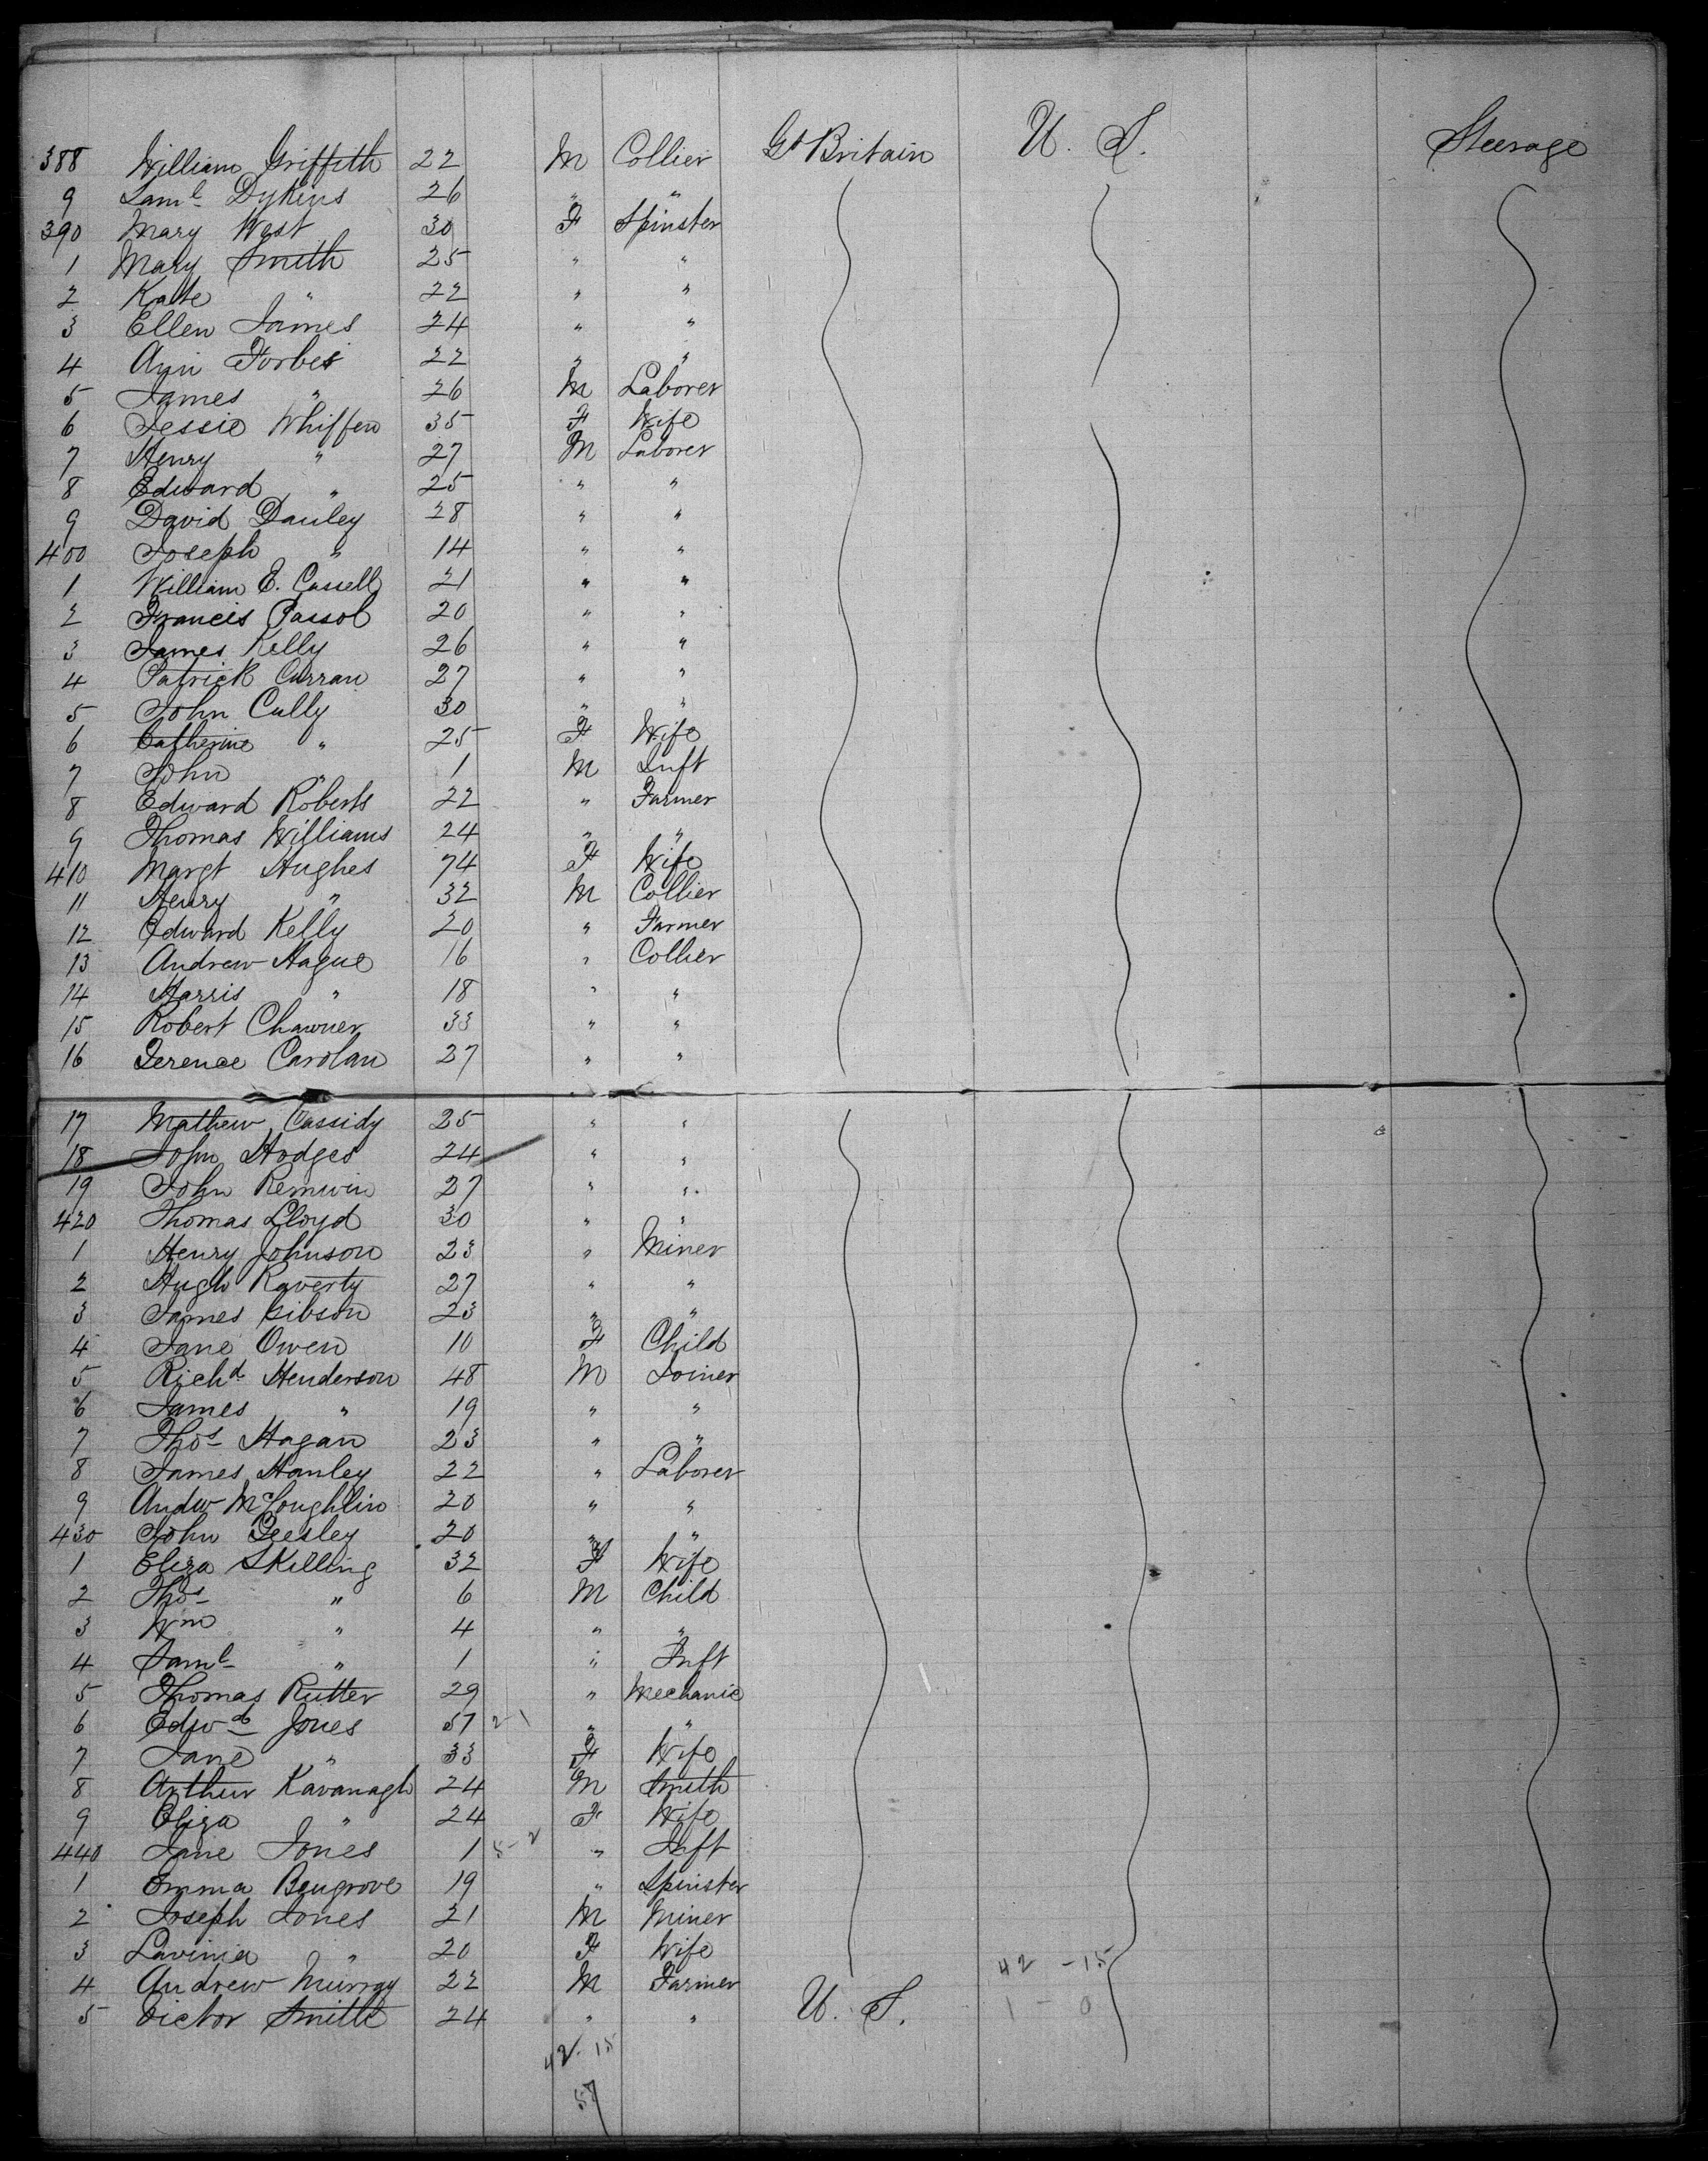 388 William Griffith 22 M Collier Gt Britain U. S. Steerage
9 Saml Dykins 26 " "
390 Mary West 30 F Spinster
1 Mary Smith 25 " "
2 Kate " 22 " "
3 Ellen James 24 " "
4 Ann Forbes 22 " "
5 James " 26 M Laborer
6 Jessie Whiffen 35 F Wife
7 Henry " 27 M Laborer
8 Edward " 25 " "
9 David Danley 28 " "
400 Joseph " 14 " "
1 William E. Cassell 21 " "
2 Francis Passol 20 " "
3 James Kelly 26 " "
4 Patrick Curran 27 " "
5 John Cully 30 " "
6 Catherine " 25 F Wife
7 John " 1 M Inft
8 Edward Roberts 22 " Farmer
9 Thomas Williams 24 " "
410 Margt Hughes 74 F Wife
11 Henry " 32 M Collier
12 Edward Kelly 20 " Farmer
13 Andrew Hague 16 " Collier
14 Harris " 18 " "
15 Robert Chawner 33 " "
16 Terence Carolan 27 " "
17 Mathew Cassidy 25 " "
18 John Hodges 24 " "
19 John 27 " "
420 Thomas Lloyd 30 " "
1 Henry Johnson 23 " Miner
2 Hugh Raverty 27 " "
3 James Gibson 23 " "
4 Jane Owen 10 F Child
5 Richd Henderson 48 M Joiner
6 James " 19 " "
7 Thos Hagan 23 " "
8 James Hanley 22 " Laborer
9 Andw McLoughlin 20 " "
430 John 20 " "
1 Eliza Skilling 32 F Wife
2 Thos " 6 M Child
3 Wm " 4 " "
4 Saml " 1 " Inft
5 Thomas Rutter 29 " Mechanic
6 Edwd Jones 57 2-1 " "
7 Jane " 33 F Wife
8 Arthur Kavanagh 24 M Smith
9 Eliza " 24 F Wife
440 Jane Jones 1 5-2 " Inft
1 Emma Bengrove 19 " Spinster
2 Joseph Jones 21 M Miner
3 Lavinia " 20 F Wife 42-15
4 Andrew Murray 22 M Farmer
5 Victor Smith 24 " " U. S. 1-0
42-15
57